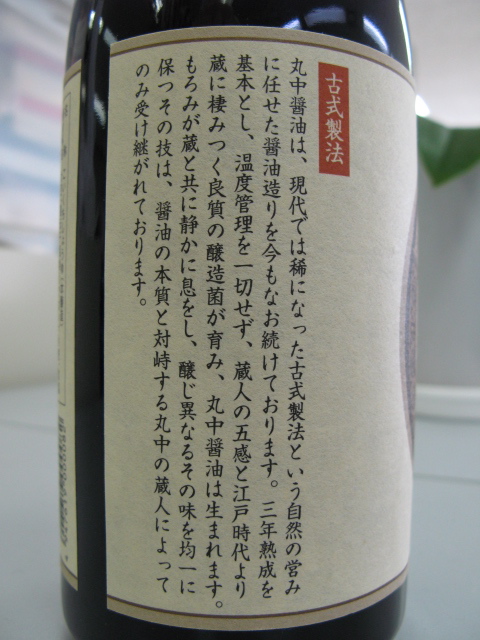 古式製法
丸中醤油は、現代では稀になった古式製法という自然の営み
に任せた醤油造りを今もなお続けております。三年熟成を
基本とし、温度管理を一切せず、蔵人の五感と江戸時代より
蔵に棲みつく良質の醸造菌が育み、丸中醤油は生まれます。
もろみが蔵と共に静かに息をし、醸じ異なるその味を均一に
保つその技は、醤油の本質と対峙する丸中の蔵人によって
のみ受け継がれております。